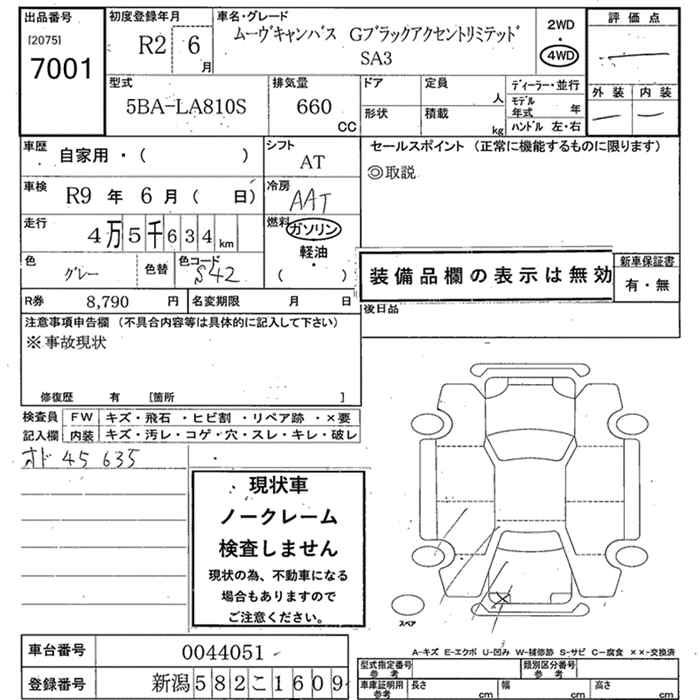 出品番号
[2075]
7001
初度登録年月
R2 6
月
車名・グレード
ムーヴキャンバス Gブラックアクセントリミテッド
SA3
2WD
・
4WD
評価点
外装 内装
型式
5BA-LA810S
排気量
660
CC
ドア
形状
定員
人
積載
kg
ディーラー・並行
モデル年式 年
ハンドル 左・右
車歴
自家用・( )
シフト
AT
車検
R9 年 6 月 ( 日)
冷房
AAT
走行
4万5千634km
燃料
ガソリン
軽油・
( )
色
グレー
色替
色コード
S42
R券 8,790 円
名変期限 月 日
セールスポイント (正常に機能するものに限ります)
◎取説
装備品欄の表示は無効
新車保証書
有・無
後日品
注意事項申告欄 (不具合内容等は具体的に記入して下さい)
※事故現状
修復歴 有 [箇所 ]
検査員
記入欄
FW キズ・飛石・ヒビ割・リペア跡・×要
内装 キズ・汚レ・コゲ・穴・スレ・キレ・破レ
オド 45635
現状車
ノークレーム
検査しません
現状の為、不動車になる
場合もありますので
ご注意ください。
スペア
A-キズ E-エクボ U-凹み W-補修跡 S-サビ C-腐食 ××-交換済
車台番号 0044051
登録番号 新潟582こ1609
型式指定番号
参考
類別区分番号
参考
車庫証明用
参考
長さ cm
幅 cm
高さ cm